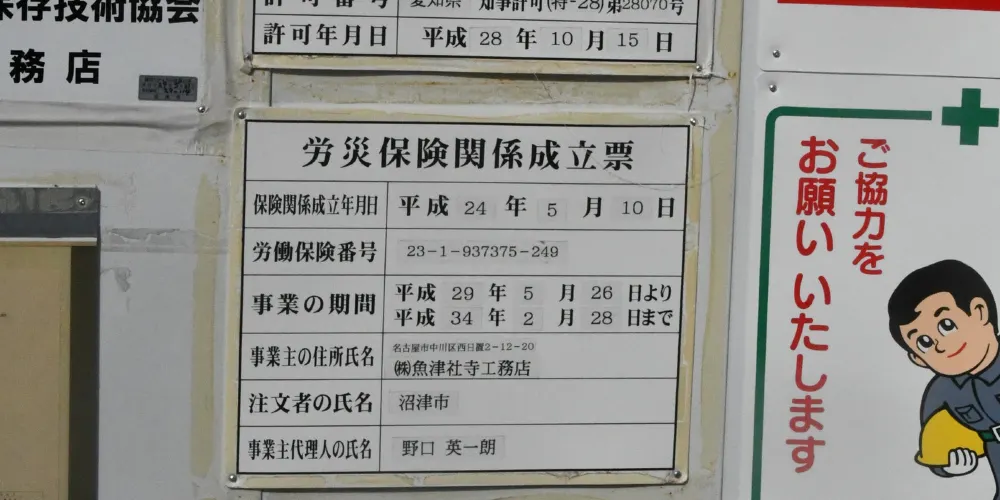 保存技術協会
務店
許可番号 愛知県 知事許可(特-28)第28070号
許可年月日 平成 28 年 10 月 15 日
労災保険関係成立票
保険関係成立年月日 平成 24 年 5 月 10 日
労働保険番号 23-1-937375-249
事業の期間 平成 29 年 5 月 26 日より
平成 34 年 2 月 28 日まで
事業主の住所氏名 名古屋市中川区西日置2-12-20
㈱魚津社寺工務店
注文者の氏名 沼津市
事業主代理人の氏名 野口 英一朗
ご協力を
お願いいたします